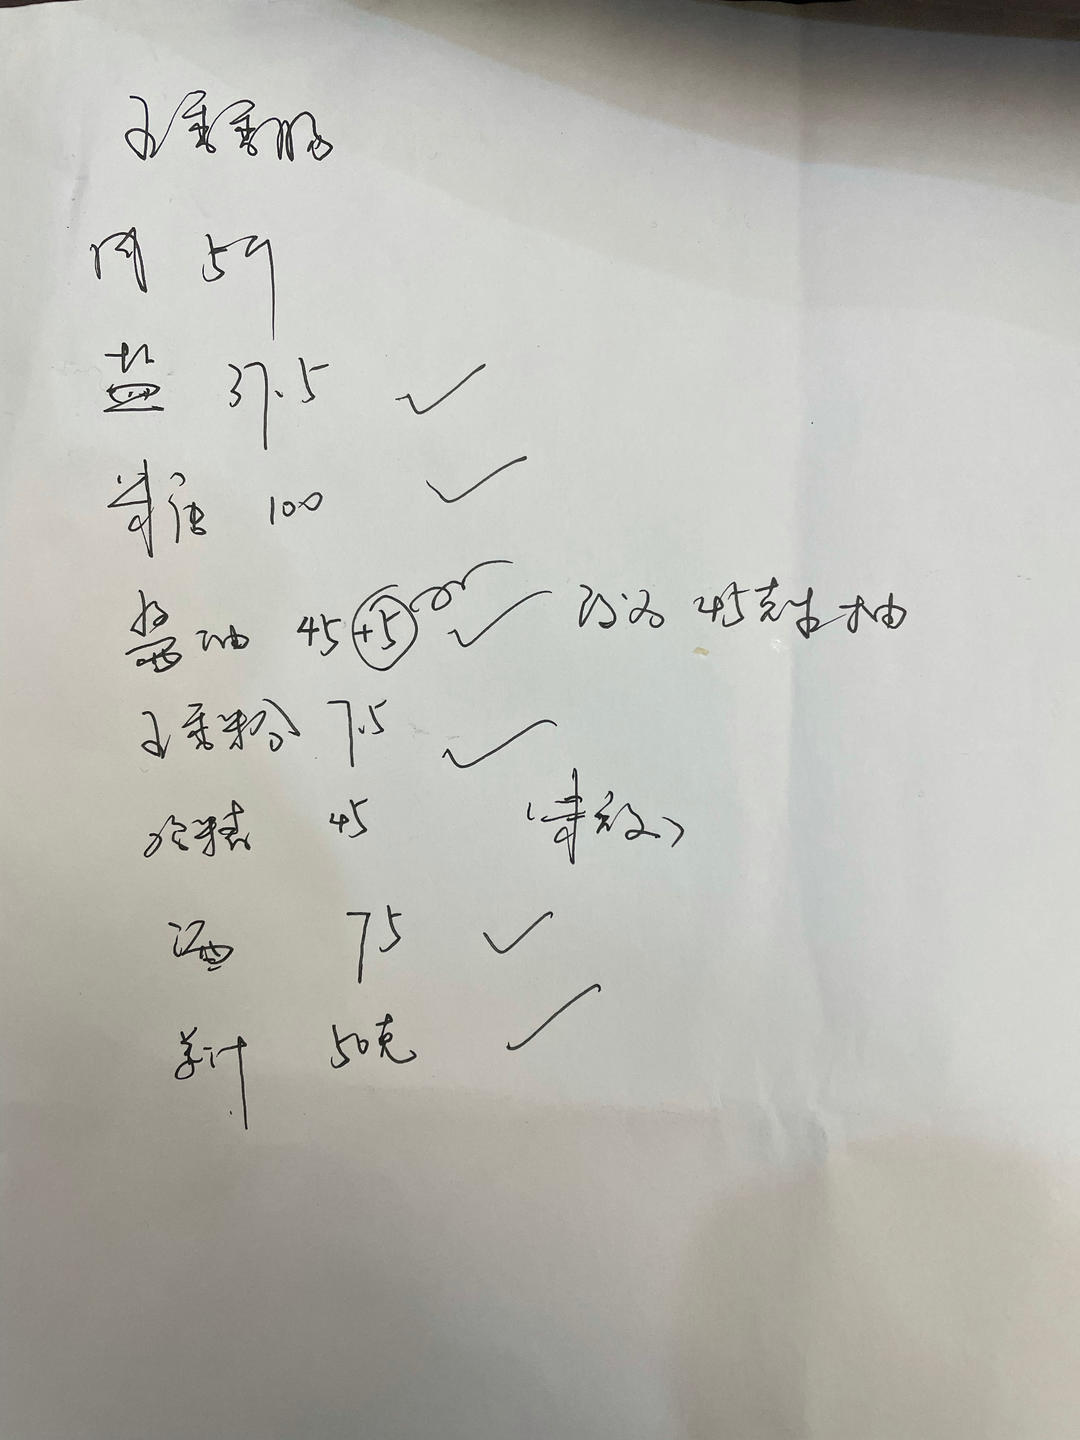 五香香肠
肉 5斤
盐 37.5
白糖 100
酱油 45+5 改为 45克生抽
五香粉 7.5
味精 45 (未放)
酒 75
姜汁 50克